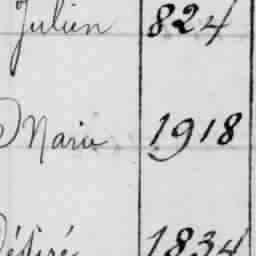 Julien 824
Marie 1918
Désiré 1834